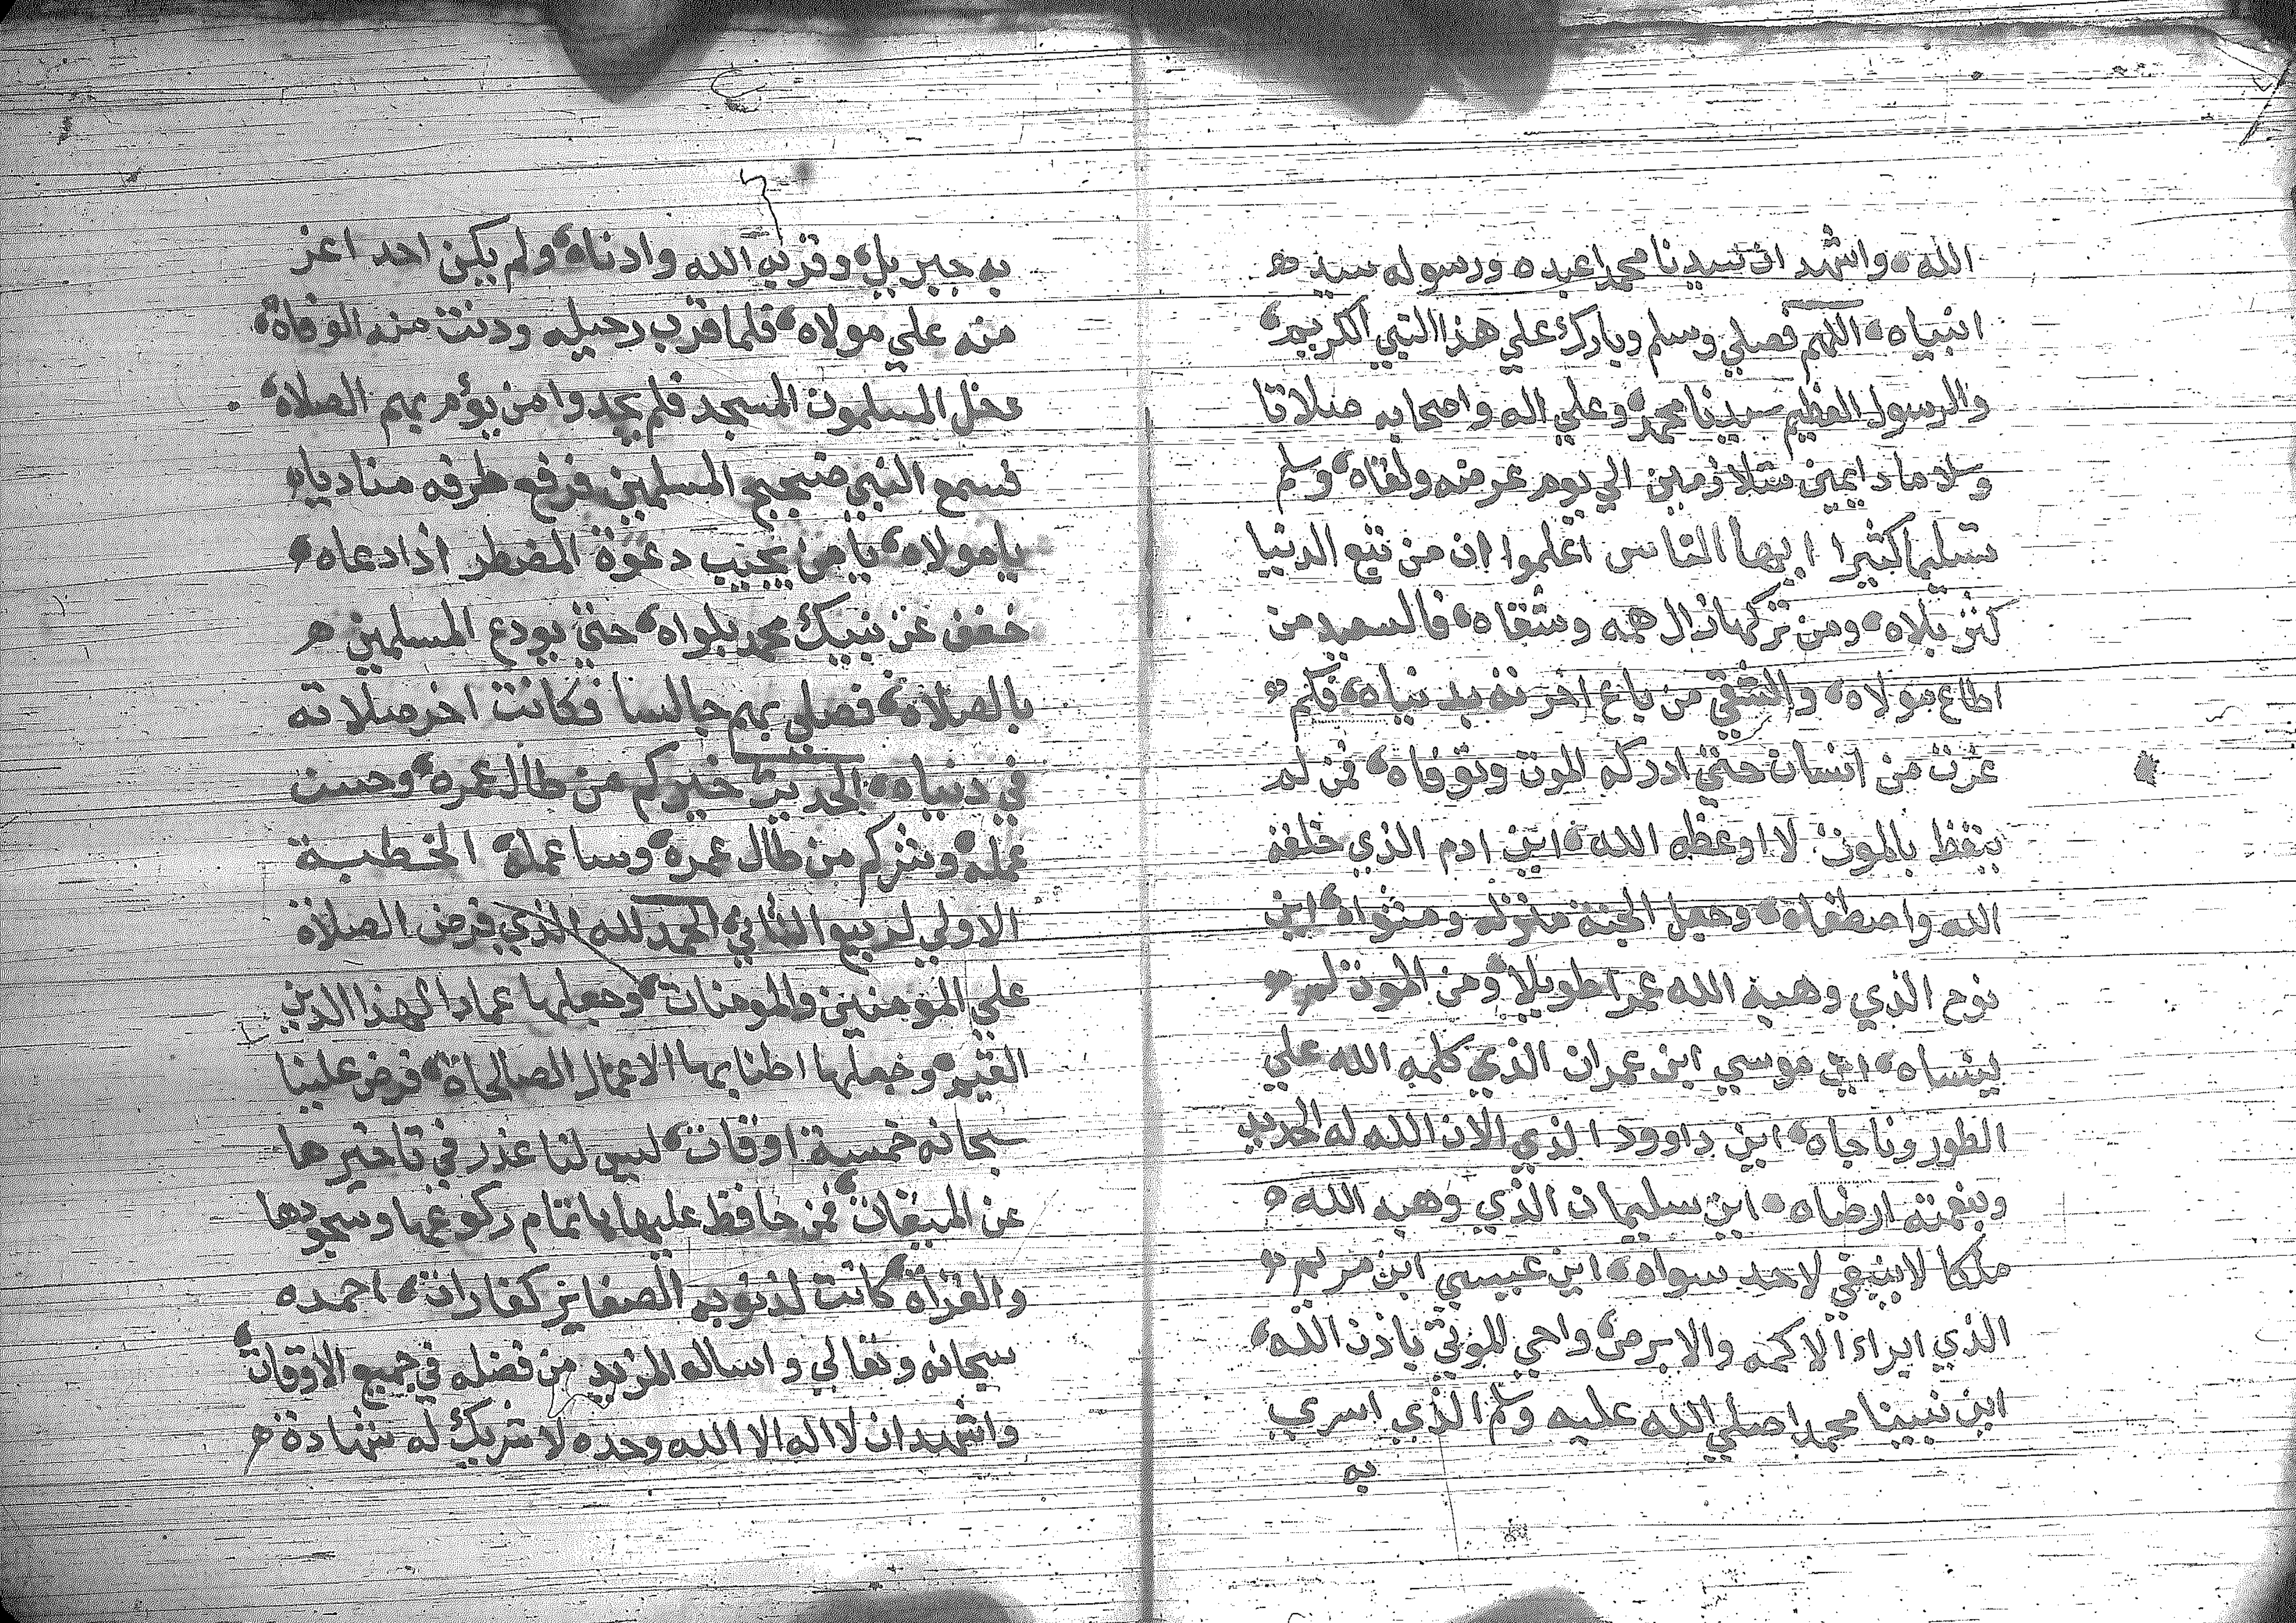 الله، واشهد ان سيدنا محمدا عبده ورسوله سيد
انبياه، اللهم فصلي وسلم وبارك علي هذا النبي الكريم،
والرسول العظيم سيدنا محمد، وعلي اله واصحابه صلاتا
وسلاما دايمين متلازمين الي يوم عرضه ولقاه، وسلم
تسليما كثيرا ايها الناس اعلموا ان من تبع الدنيا
كثر بلاه، ومن تركها زال همه وشقاه، فالسعيد من
اطاع مولاه، والشقي من باع اخرته بدنياه، فكم
غرت من انسان حتي ادركه الموت وتوفاه، فمن لم
يتعظ بالموت لا اوعظه الله، اين ادم الذي خلقه
الله واصطفاه، وجعل الجنة منزله ومثواه، اين
نوح الذي وهبه الله عمرا طويلا، ومن الموت لم
ينساه، اين موسي ابن عمران الذي كلمه الله علي
الطور وناجاه، اين داوود الذي الان الله له الحديد
وبنعمته ارضاه، اين سليمان الذي وهبه الله،
ملكا لا ينبغي لاحد سواه، اين عيسي ابن مريم
الذي ابراء الاكمه والابرص، واحي الموتي باذن الله،
اين نبينا محمدا صلي الله عليه وسلم الذي اسري
به
٦
به جبريل، وقربه الله وادناه، ولم يكن احد اعز
منه علي مولاه، فلما قرب رحيله ودنت منه الوفاة،
دخل المسلمون المسجد فلم يجدوا من يؤم بهم الصلاة،
فسمع النبي ضجيج المسلمين فرفع طرفه مناديا،
يا مولاه، يا من يجيب دعوة المضطر اذا دعاه،
خفف عن نبيك محمد بلواه، حتي يودع المسلمين
بالصلاة، فصلي بهم جالسا فكانت اخر صلاته
في دنياه، الحديث خيركم من طال عمره، وحسن
عمله، وشركم من طال عمره، وسا عمله، الخطبة
الاولي لربيع الثاني الحمد لله الذي فرض الصلاة
علي المومنين والمومنات، وجعلها عمادا لهذا الدين
القيم، وجعلها اطنابها الاعمال الصالحاة، فرض علينا
سبحانه خمسة اوقات، ليس لنا عذر في تاخيرها
عن الميقات، فمن حافظ عليها باتمام ركوعها وسجودها
والقراة، كانت لذنوبه الصغاير كفارات، احمده
سبحانه وتعالي واساله المزيد من فضله في جميع الاوقات،
واشهد ان لا اله الا الله وحده لا شريك له شهادة